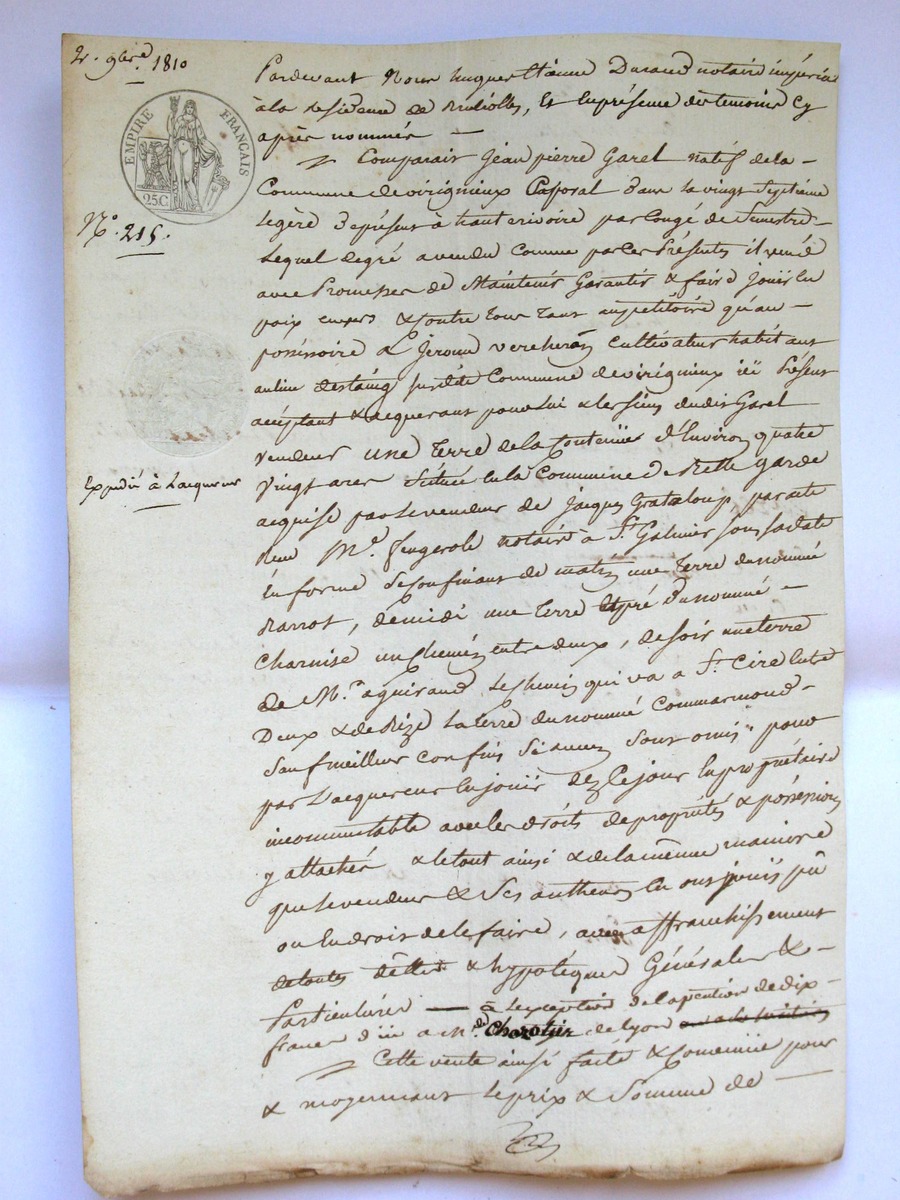 2. 9bre 1810
EMPIRE FRANÇAIS
25C
N.° 215.
Expédié à Lacquereur
Pardevant Nous hugues Etienne Durand notaire impérial
à la residence de Brulliolles, Et en présence des temoins cy
après nommés —
Comparait Jean pierre Garel natif de la —
Commune de virigneux Caporal dans la vingt Septième
legère de présent à haut erivoire par Congé de Semestre
Lequel de gré a vendu Comme par ces Présentes il vend
avec Promesses de Maintenir Garantir & faire Jouir en
paix envers & Contre tous tant au petitoire qu'au —
possessoire a Jerome vereheron Cultivateur habitant
au lieu destaing susdite Commune de virigneux ici Présent
acceptant & acquerant pour lui & les siens dudit Garel
vendeur une Terre de la Contenue d'Environ quatre
Vingt ares Située en la Commune de la garde
acquise par le vendeur de Jacques Grataloup par acte
reçu M.e fougerole notaire à S.t Galmier sous sa date
En forme se Confinant de matin une terre du nommé
, de midi une terre & pré du nommé —
Charvise un Chemin entre deux, de soir une terre
de M.r aguiraud le chemin qui va a S.t Cire entre
Deux & de Bize la terre du nommé Commarmond —
Sauf meilleurs confins Si aucuns Sont omis" pour
par L'acquereur en jouir dez Ce jour en propriétaire
incommutable avec les droits de propriétés & possession
y attachés & le tout ainsi & de la même manière
que le vendeur & Ses autheurs en ont jouis pû
ou en droit de le faire, avec affranchissement
de toutes dettes & hypotèques Générales & —
Particulières — à l'exception de la pention de dix —
francs düe a M.de de Lyon
Cette vente ainsi faite & Convenüe pour
& moyennant le prix & Somme de —